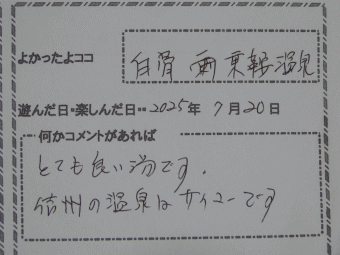 よかったよココ 白骨 両乗鞍温泉
遊んだ日・楽しんだ日… 2025年 7月20日
何かコメントがあれば
とても良い湯です。
信州の温泉はサイコーです